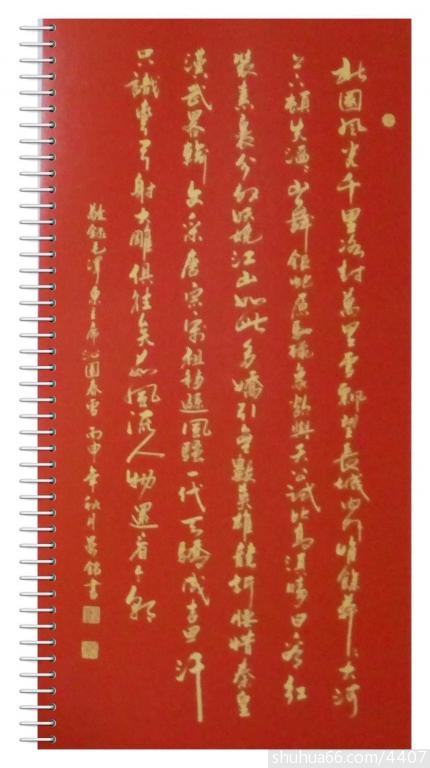 北國風光千里冰封萬里雪飄望長城內外惟餘莽〻大河
上下頓失滔〻山舞銀蛇原馳蠟象欲與天公試比高須晴日看紅
裝素裹分外妖嬈江山如此多嬌引無數英雄競折腰惜秦皇
漢武略輸文采唐宗宋祖稍遜風騷一代天驕成吉思汗
只識彎弓射大雕俱往矣數風流人物還看今朝
敬錄毛澤東主席沁園春雪 丙申年秋月 書
shuhua66.com/4407